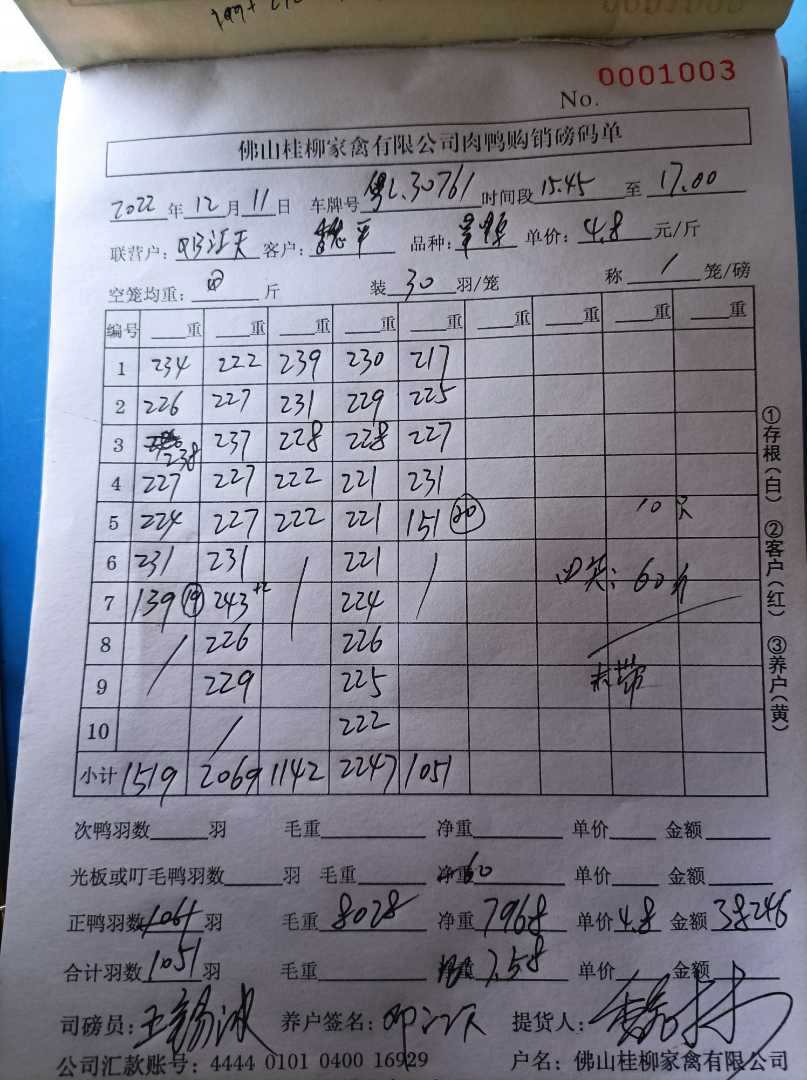 No. 0001003
佛山桂柳家禽有限公司肉鸭购销磅码单
2022年12月11日 车牌号 粤L.30761 时间段 15.45 至 17.00
联营户: 邓江天 客户: 平 品种: 单价: 4.8 元/斤
空笼均重: 斤 装 30 羽/笼 称 / 笼/磅
编号 重 重 重 重 重 重 重 重 重
1 234 222 239 230 217
2 226 227 231 229 225
3 238 237 228 228 227
4 227 227 222 221 231
5 224 227 222 221 151 20 10只
6 231 231 / 221 / 60斤
7 139 19 243 +2 224
8 / 226 226
9 229 225
10 / 222
小计 1519 2069 1142 2247 1051
①存根(白) ②客户(红) ③养户(黄)
次鸭羽数 羽 毛重 净重 单价 金额
光板或叮毛鸭羽数 羽 毛重 净重 60 单价 金额
正鸭羽数 1061 羽 毛重 8028 净重 7968 单价 4.8 金额 38246
合计羽数 1051 羽 毛重 7.58 单价 金额
司磅员: 王锡冰 养户签名: 邓江天 提货人:
公司汇款账号: 4444 0101 0400 16929 户名: 佛山桂柳家禽有限公司